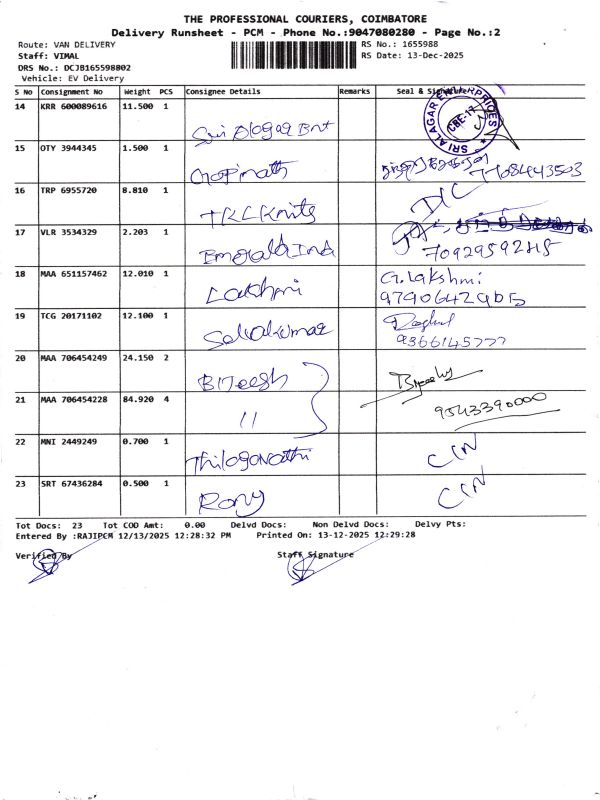 THE PROFESSIONAL COURIERS, COIMBATORE
Delivery Runsheet - PCM - Phone No.:9047080280 - Page No.:2
Route: VAN DELIVERY
RS No.: 1655988
Staff: VIMAL
RS Date: 13-Dec-2025
DRS No.: DCJB165598802
Vehicle: EV Delivery
S No Consignment No Weight PCS Consignee Details Remarks Seal & Signature
14 KRR 600089616 11.500 1
SRI ALAGAR ENTERPRISES
CBE-17
15 OTY 3944345 1.500 1
Gopinath
7708443503
16 TRP 6955720 8.810 1
TKL Knits
D/C
17 VLR 3534329 2.203 1
Emerald Ind
7092959245
18 MAA 651157462 12.010 1
Lakshmi
G.Lakshmi
9790642905
19 TCG 20171102 12.100 1
Selvakumar
9366145777
20 MAA 706454249 24.150 2
Brjeesh
21 MAA 706454228 84.920 4
11
9543390000
22 MNI 2449249 0.700 1
Thilaganathi
C/N
23 SRT 67436284 0.500 1
Rony
C/N
Tot Docs: 23 Tot COD Amt: 0.00 Delvd Docs: Non Delvd Docs: Delvy Pts:
Entered By :RAJIPCM 12/13/2025 12:28:32 PM Printed On: 13-12-2025 12:29:28
Verified By
Staff Signature